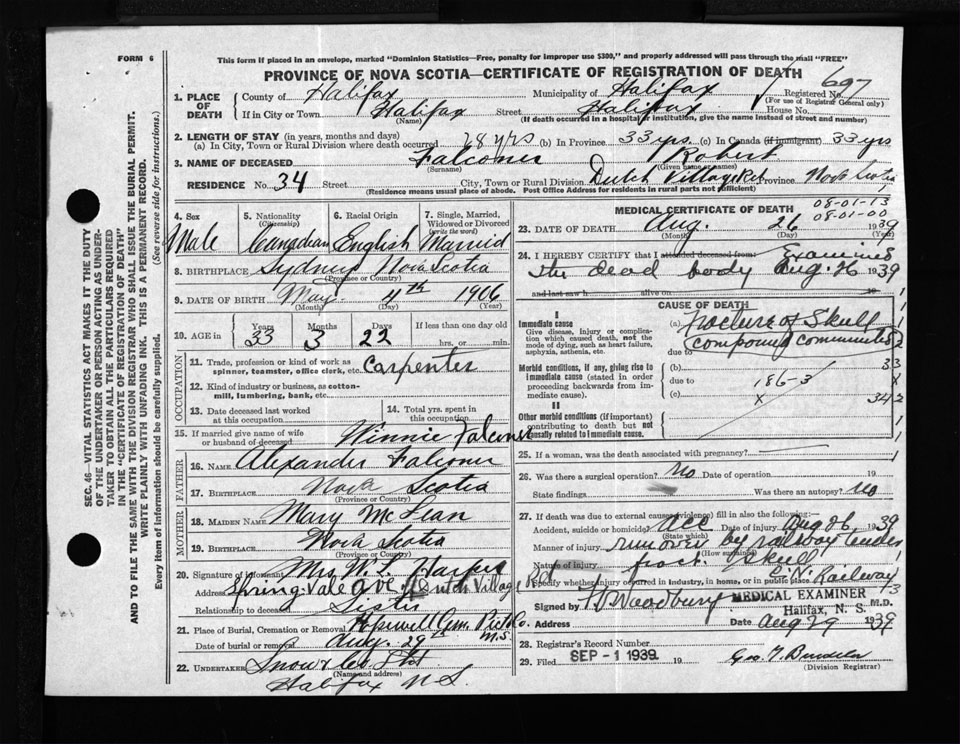 FORM 6
This form if placed in an envelope, marked "Dominion Statistics—Free, penalty for improper use $300," and properly addressed will pass through the mail "FREE"
PROVINCE OF NOVA SCOTIA—CERTIFICATE OF REGISTRATION OF DEATH
697
1. PLACE OF DEATH
County of Halifax Municipality of Halifax Registered No.
(For use of Registrar General only)
If in City or Town Halifax Street Halifax House No.
(Name) (If death occurred in a hospital or institution, give the name instead of street and number)
2. LENGTH OF STAY (in years, months and days)
(a) In City, Town or Rural Division where death occurred 28 yrs (b) In Province 33 yrs. (c) In Canada (if immigrant) 33 yrs
3. NAME OF DECEASED Falconer Robert
(Surname) (Given name or names)
RESIDENCE No. 34 Street City, Town or Rural Division Dutch Village Rd Province Nova Scotia
(Residence means usual place of abode. Post Office Address for residents in rural parts not sufficient)
4. Sex Male
5. Nationality (Citizenship) Canadian
6. Racial Origin English
7. Single, Married, Widowed or Divorced (write the word) Married
8. BIRTHPLACE Sydney Nova Scotia
(Province or Country)
9. DATE OF BIRTH May 4th 1906
(Month) (Day) (Year)
10. AGE in Years Months Days If less than one day old
33 3 22 hrs. or min.
OCCUPATION
11. Trade, profession or kind of work as spinner, teamster, office clerk, etc. Carpenter
12. Kind of industry or business, as cotton-mill, lumbering, bank, etc.
13. Date deceased last worked at this occupation
14. Total yrs. spent in this occupation
15. If married give name of wife or husband of deceased Winnie Falconer
FATHER
16. NAME Alexander Falconer
17. BIRTHPLACE Nova Scotia
(Province or Country)
MOTHER
18. MAIDEN NAME Mary McLean
19. BIRTHPLACE Nova Scotia
(Province or Country)
20. Signature of informant Mrs W. L.
Address Spring Vale Ave Dutch Village Rd
Relationship to deceased Sister
21. Place of Burial, Cremation or Removal Hopewell Cem. Pict Co. N.S.
Date of burial or removal Aug. 29th
22. UNDERTAKER Snow & Co. Ltd
(Name and address)
Halifax N.S.
MEDICAL CERTIFICATE OF DEATH
08-01-13
08-01-00
23. DATE OF DEATH Aug. 26 1939
(Month) (Day) (Year)
24. I HEREBY CERTIFY that I attended deceased from: Examined
the dead body Aug 26 1939
and last saw h alive on 19
CAUSE OF DEATH
I
Immediate cause
Give disease, injury or complication which caused death, not the mode of dying, such as heart failure, asphyxia, asthenia, etc.
(a) Fracture of Skull
due to compound comminuted
Morbid conditions, if any, giving rise to immediate cause (stated in order proceeding backwards from immediate cause).
(b)
due to 186-3
(c) X
II
Other morbid conditions (if important) contributing to death but not causally related to immediate cause.
25. If a woman, was the death associated with pregnancy?
26. Was there a surgical operation? no Date of operation 19
State findings Was there an autopsy? no
27. If death was due to external causes (violence) fill in also the following:—
Accident, suicide or homicide? Acc Date of injury Aug 26 1939
(State which)
Manner of injury run over by railway tender
(How sustained)
Nature of injury fract. Skull
Specify whether injury occurred in industry, in home, or in public place C.N. Railway
Signed by Woodbury M.D.
MEDICAL EXAMINER
Halifax, N. S.
Address Date Aug 29 1939
28. Registrar's Record Number
29. Filed SEP - 1 1939 19
(Division Registrar)
SEC. 46—VITAL STATISTICS ACT MAKES IT THE DUTY OF THE UNDERTAKER OR PERSON ACTING AS UNDERTAKER TO OBTAIN ALL THE PARTICULARS REQUIRED IN THE "CERTIFICATE OF REGISTRATION OF DEATH"
AND TO FILE THE SAME WITH THE DIVISION REGISTRAR WHO SHALL ISSUE THE BURIAL PERMIT.
WRITE PLAINLY WITH UNFADING INK. THIS IS A PERMANENT RECORD.
Every item of information should be carefully supplied. (See reverse side for instructions.)